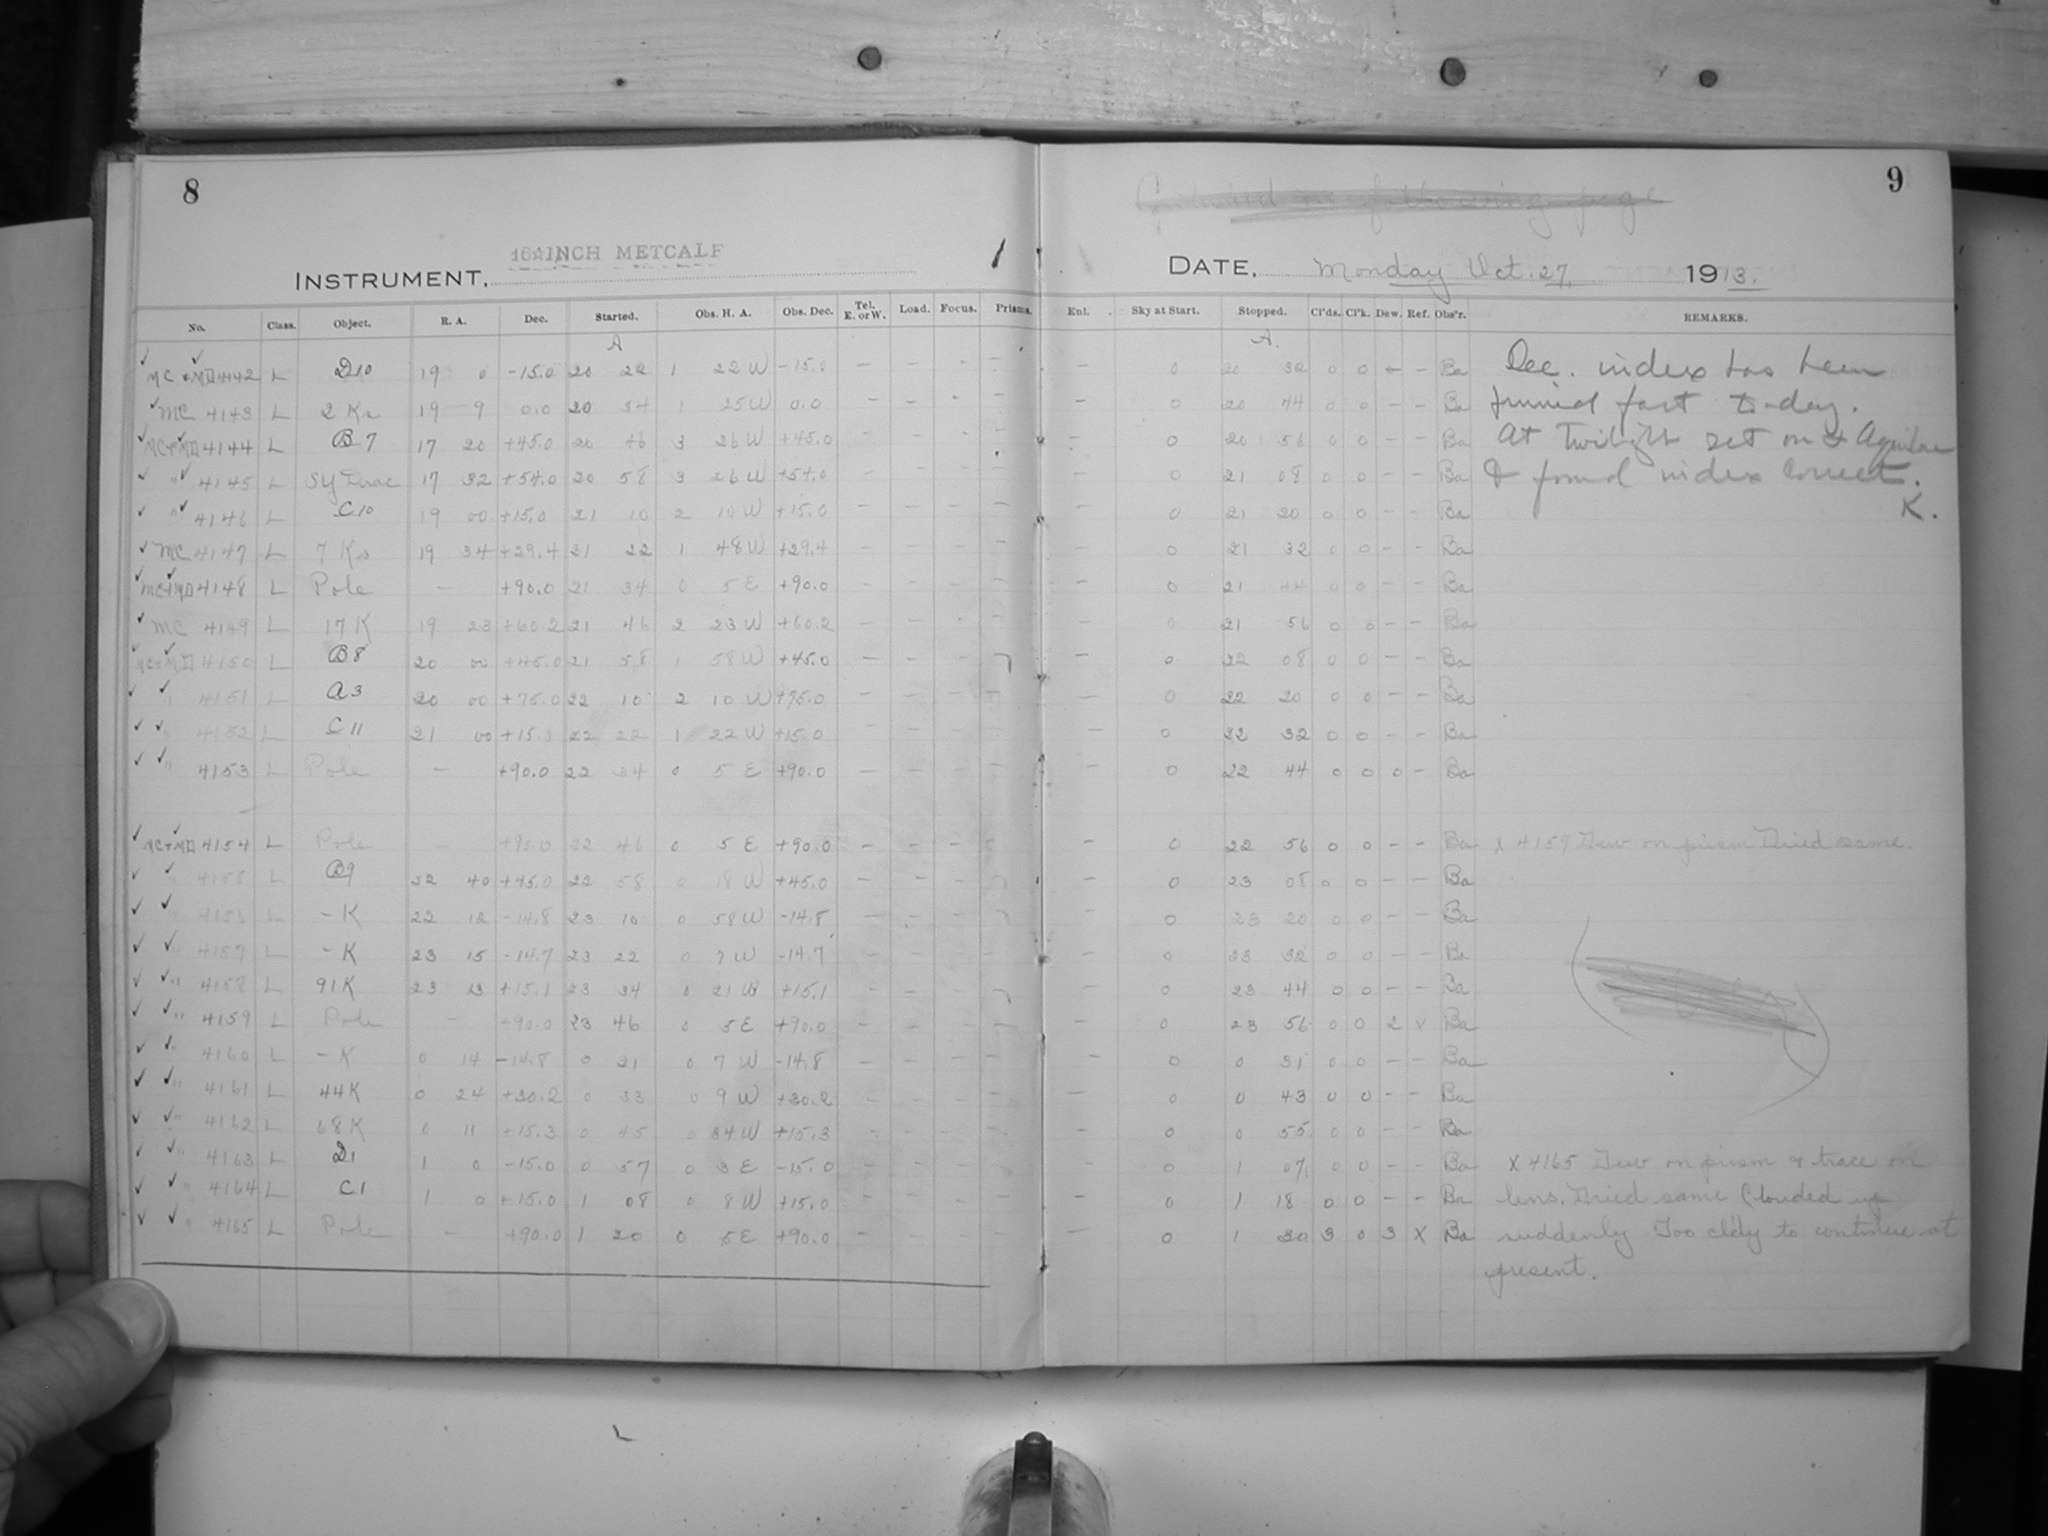 8
16 INCH METCALF
INSTRUMENT,
No. Class. Object. R. A. Dec. Started. Obs. H. A. Obs. Dec. Tel. E. or W. Load. Focus. Prisms.
A
MC+MD 4142 L D10 19 0 -15.0 20 22 1 22 W -15.0 — — - —
MC 4143 L 2 Ks 19 9 0.0 20 34 1 25 W 0.0 — — - —
MC+MD 4144 L B7 17 20 +45.0 20 46 3 26 W +45.0 — — - —
" 4145 L SY Drac 17 32 +54.0 20 58 3 26 W +54.0 — — - —
" 4146 L C10 19 00 +15.0 21 10 2 10 W +15.0 — — - —
MC 4147 L 7 Ks 19 34 +29.4 21 22 1 48 W +29.4 — — - —
MC+MD 4148 L Pole — +90.0 21 34 0 5 E +90.0 — — - —
MC 4149 L 17 K 19 23 +60.2 21 46 2 23 W +60.2 — — - —
MC+MD 4150 L B8 20 00 +45.0 21 58 1 58 W +45.0 — — - —
" 4151 L A3 20 00 +75.0 22 10 2 10 W +75.0 — — - —
" 4152 L C11 21 00 +15.0 22 22 1 22 W +15.0 — — - —
" 4153 L Pole — +90.0 22 34 0 5 E +90.0 — — - —
MC+MD 4154 L Pole — +90.0 22 46 0 5 E +90.0 — — - —
" 4155 L B9 22 40 +45.0 22 58 0 18 W +45.0 — — - —
" 4156 L - K 22 12 -14.8 23 10 0 58 W -14.8 — — - —
" 4157 L - K 23 15 -14.7 23 22 0 7 W -14.7 — — - —
" 4158 L 91K 23 13 +15.1 23 34 0 21 W +15.1 — — - —
" 4159 L Pole — +90.0 23 46 0 5 E +90.0 — — - —
" 4160 L - K 0 14 -14.8 0 21 0 7 W -14.8 — — - —
" 4161 L 44K 0 24 +30.2 0 33 0 9 W +30.2 — — - —
" 4162 L 68 K 0 11 +15.3 0 45 0 34 W +15.3 — — - —
" 4163 L D1 1 0 -15.0 0 57 0 3 E -15.0 — — - —
" 4164 L C1 1 0 +15.0 1 08 0 8 W +15.0 — — - —
" 4165 L Pole — +90.0 1 20 0 5 E +90.0 — — - —
9
Continued on following page
DATE, Monday Oct. 27, 1913.
Enl. Sky at Start. Stopped. Cl'ds. Cl'k. Dew. Ref. Obs'r. REMARKS.
A.
— 0 20 32 0 0 — - Ba Dec. index has been
— 0 20 44 0 0 — - Ba found fast to-day.
— 0 20 56 0 0 — - Ba At twilight set on Aquilae
— 0 21 08 0 0 — - Ba & found index correct.
— 0 21 20 0 0 — - Ba K.
— 0 21 32 0 0 — - Ba
— 0 21 44 0 0 — - Ba
— 0 21 56 0 0 — - Ba
— 0 22 08 0 0 — - Ba
— 0 22 20 0 0 — - Ba
— 0 22 32 0 0 — - Ba
— 0 22 44 0 0 0 - Ba
— 0 22 56 0 0 — - Ba X 4159 Dew on prism Dried same.
— 0 23 08 0 0 — - Ba
— 0 23 20 0 0 — - Ba
— 0 23 32 0 0 — - Ba
— 0 23 44 0 0 — - Ba
— 0 23 56 0 0 2 x Ba
— 0 0 31 0 0 — - Ba
— 0 0 43 0 0 — - Ba
— 0 0 55 0 0 — - Ba
— 0 1 07 0 0 — - Ba X 4165 Dew on prism & trace on
— 0 1 18 0 0 — - Ba lens. Dried same Clouded up
— 0 1 30 3 0 3 X Ba suddenly Too cl'dy to continue at
present.